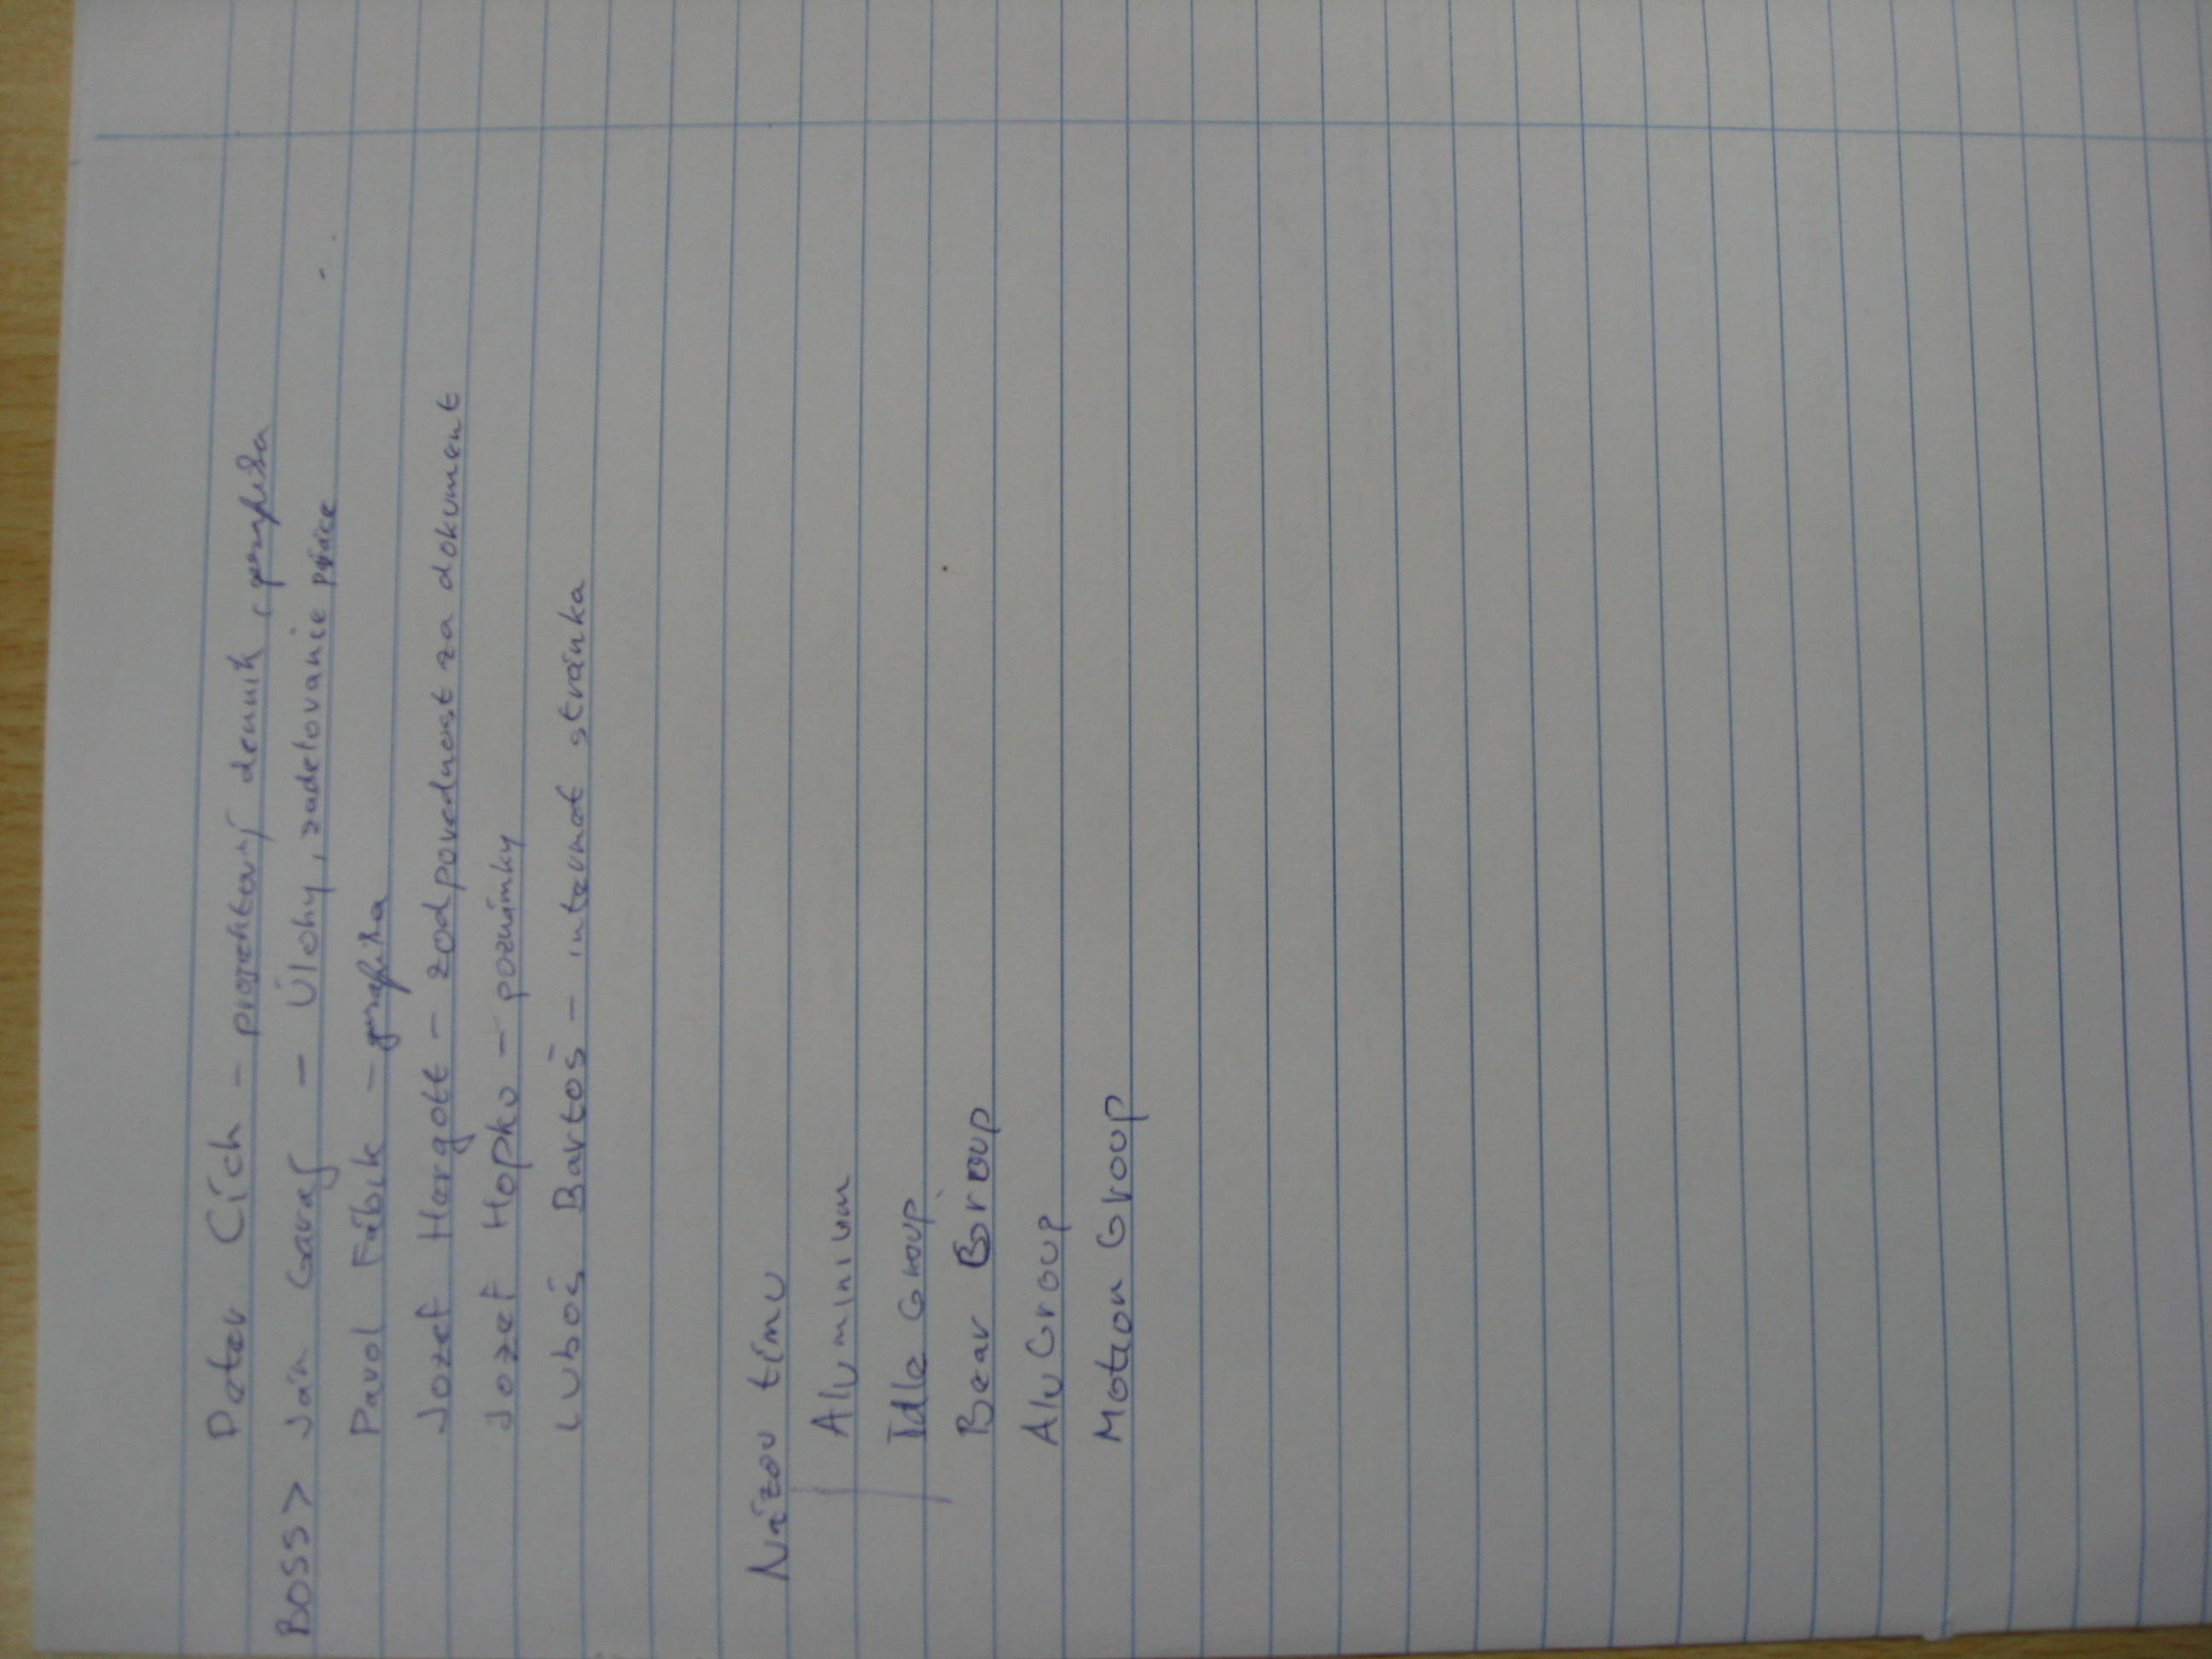 Peter Cích - projektový dennik, grafika
BOSS> Ján Garaj - Úlohy, zadelovanie práce
Pavol Fábik - grafika
Jozef Hergott - zodpovednost za dokument
Jozef Hopko - poznámky
Luboš Bartoš - internet stránka
Názov tímu
Aluminium
Idle Group
Bear Group
Alu Group
Motion Group